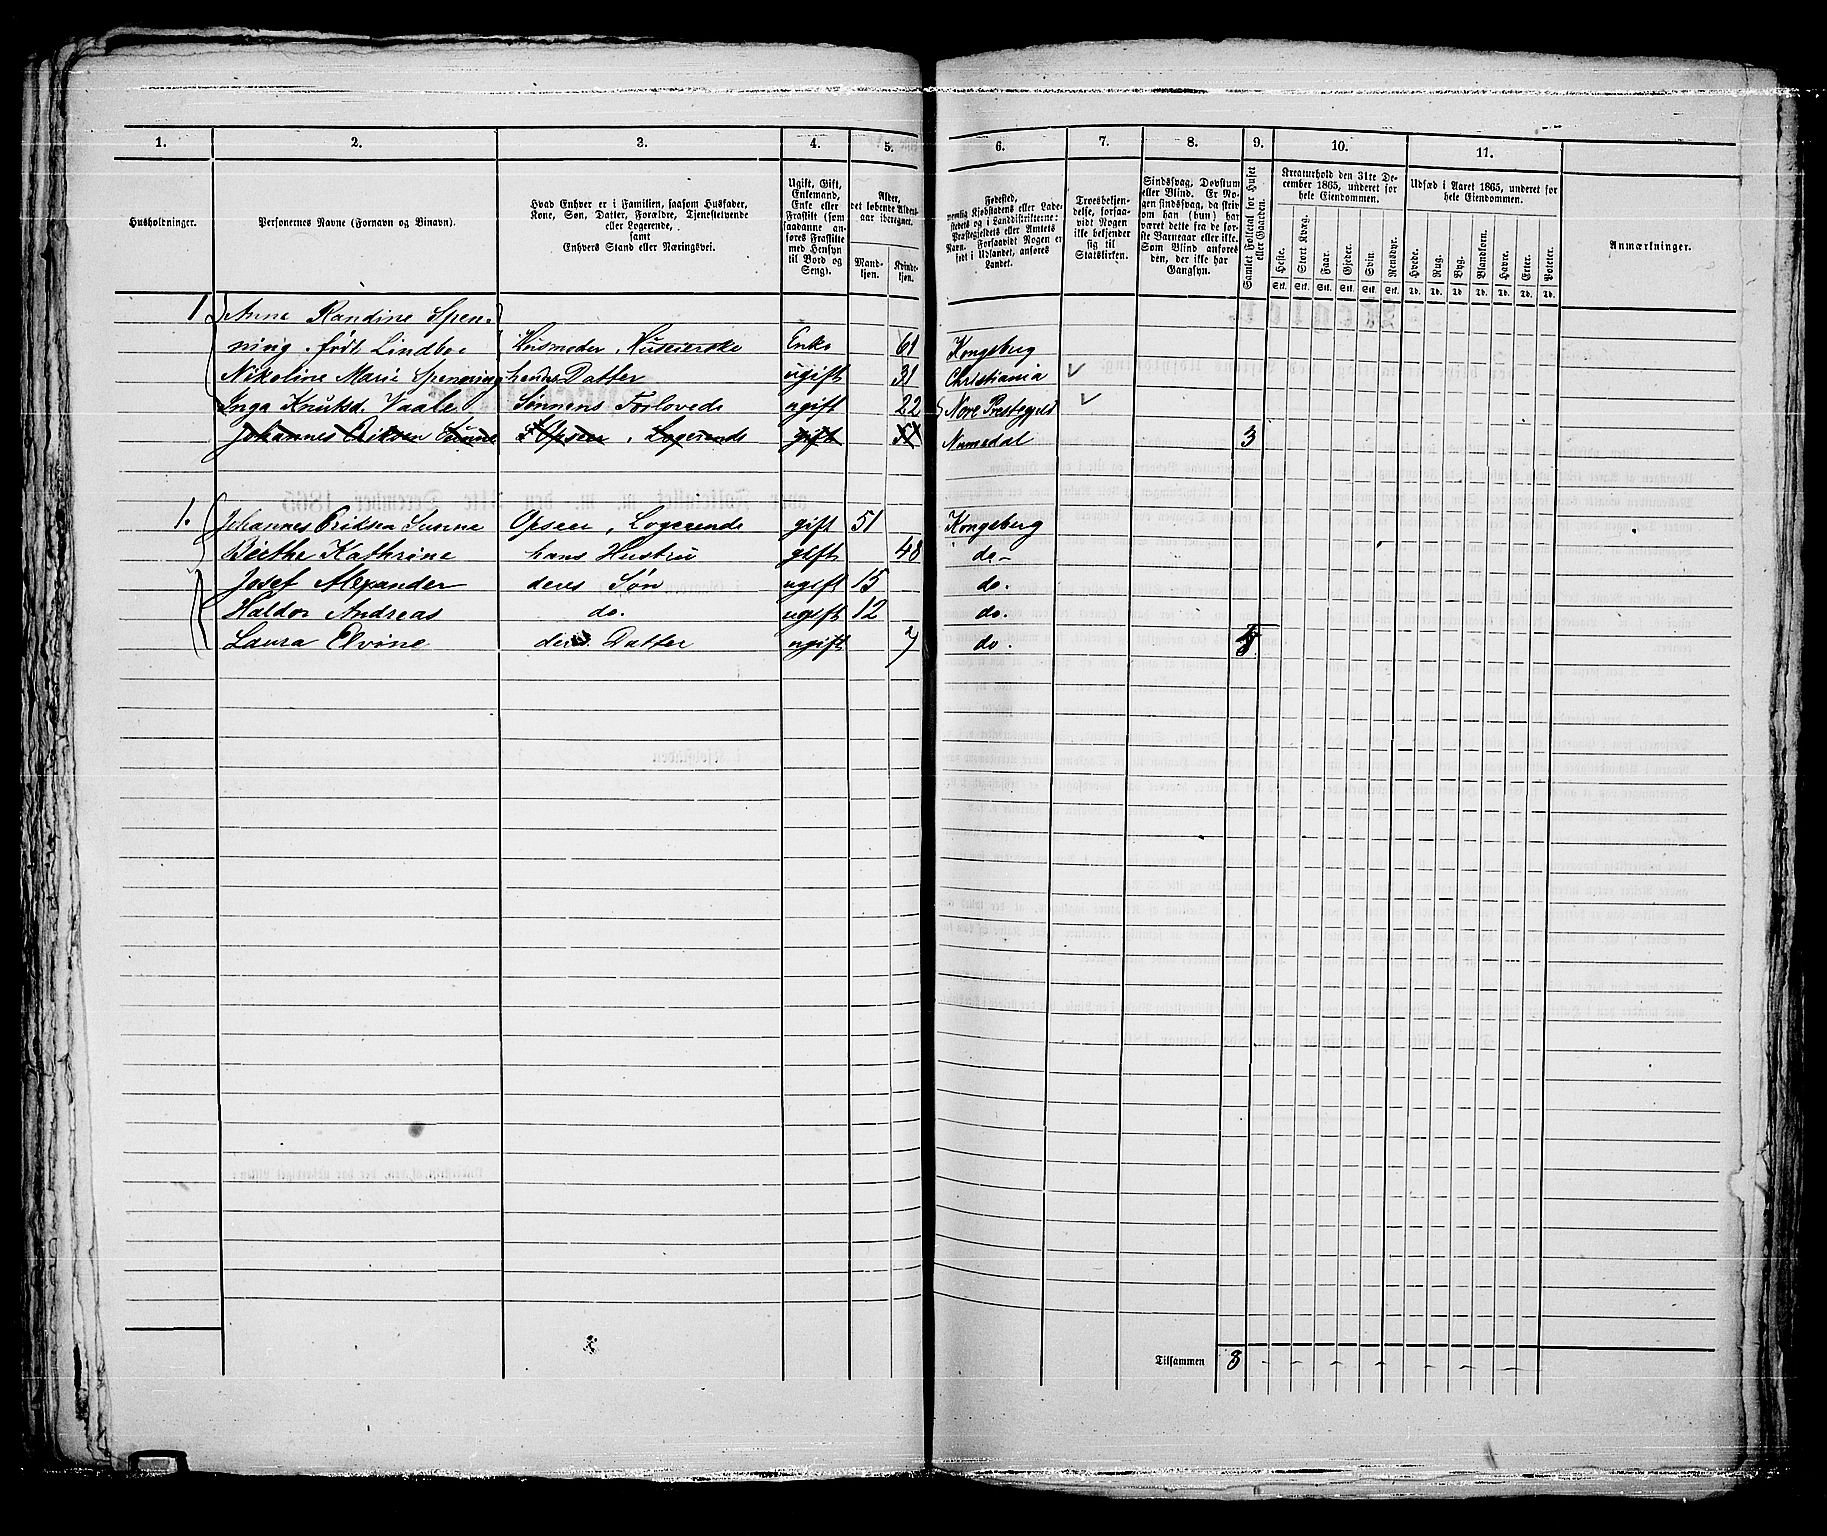 1. 2. 3. 4. 5. 6. 7. 8. 9. 10. 11.
Husholdninger.
Personernes Navne (Fornavn og Binavn).
Hvad Enhver er i Familien, saasom Husfader,
Kone, Søn, Datter, Forældre, Tjenestetyende
eller Logerende,
samt
Enhvers Stand eller Næringsvei.
Ugift, Gift,
Enkemand,
Enke eller
Fraskilt (som
saadanne an-
føres Fraskilte
med Hensyn
til Bord og
Seng).
Alder,
det løbende Alders-
aar iberegnet.
Mand-
kjøn.
Kvinde-
kjøn.
Fødested,
nemlig Kjøbstadens eller Lade-
stedets og i Landdistrikterne:
Præstegjeldets eller Amtets
Navn. Forsaavidt Nogen er
født i Udlandet, anføres
Landet.
Troesbekjen-
delse, forsaa-
vidt Nogen
ikke bekjender
sig til
Statskirken.
Sindssvag, Døvstum
eller Blind. Er No-
gen sindssvag, da skriv
om han (hun) har
været dette fra de før-
ste Barneaar eller ikke.
Som Blind anføres
den, der ikke har
Gangsyn.
Samlet Folketal for Huset
eller Gaarden.
Kreaturhold den 31te De-
cember 1865, underet for
hele Eiendommen.
Heste. Stort Kvæg. Faar. Gjeder. Svin. Rensdyr.
Stk. Stk. Stk. Stk. Stk. Stk.
Udsæd i Aaret 1865, underet for
hele Eiendommen.
Hvede. Rug. Byg. Blandkorn. Havre. Erter. Poteter.
Td. Td. Td. Td. Td. Td. Td.
Anmærkninger.
1 Anne Randine Spen-
ning. født Lindboe Husmoder, Huseierske Enke 61 Kongsberg
Nikoline Marie Spenning hendes Datter ugift 31 Christiania
Inga Knutsd. Vaale Sønnens Forlovede ugift 22 Nore Prestegjeld
Johannes Eriksen Sunne Opseer, Logerende gift Numedal 3
1. Johannes Eriksen Sunne Opseer, Logerende gift 51 Kongsberg
Birthe Kathrine hans Hustru gift 48 do-
Josef Alexander deres Søn ugift 15 do.
Haldor Andreas do. ugift 12 do.
Laura Elvine deres Datter ugift 7 do. 5
Tilsammen 8